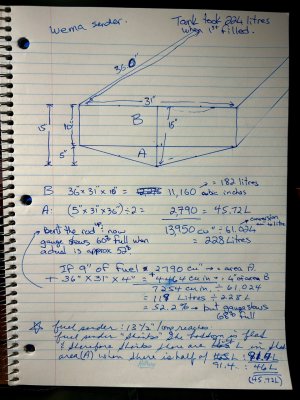 Wema sender.
Tank took 224 litres
when 1st filled.
36.0"
31"
B
15"
10"
15"
5"
A
B 36 x 31 x 10" = 11,160 cubic inches
→ = 182 litres
A: (5" x 31" x 36") ÷ 2 = 2,790 = 45.72L
conversion
cu" to litre
13950 cu" ÷ 61.024
= 228 Litres
bent the rod: now
gauge shows 60% full when
actual is approx 52%
If 9" of fuel = 2790 cu" → = area A
+ 36" x 31" x 4" = 4464 cu in = 4" of area B
7254 cu in ÷ 61.024
= 118 Litres ÷ 228L
= 52.2% → but gauge shows
68% full
fuel sender: 13 1/2" long reaches
fuel sender "thinks" the bottom is flat
& therefore thinks there are L in the
area (A) when there is half of L :
91.4 : 46L
(45.72L)